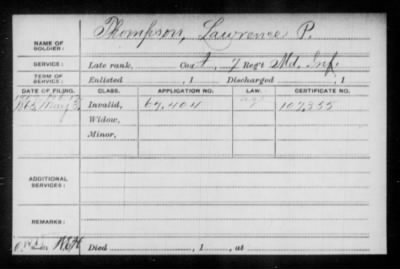 Thompson, Lawrence P.
NAME OF SOLDIER:
SERVICE: Late rank, Co. A, 7 Reg't Md. Inf.
TERM OF SERVICE: Enlisted , 1 Discharged , 1
DATE OF FILING. CLASS. APPLICATION NO. LAW. CERTIFICATE NO.
1865 May Invalid, 67,404
Widow,
Minor,
ADDITIONAL SERVICES:
REMARKS:
Died , 1 , at